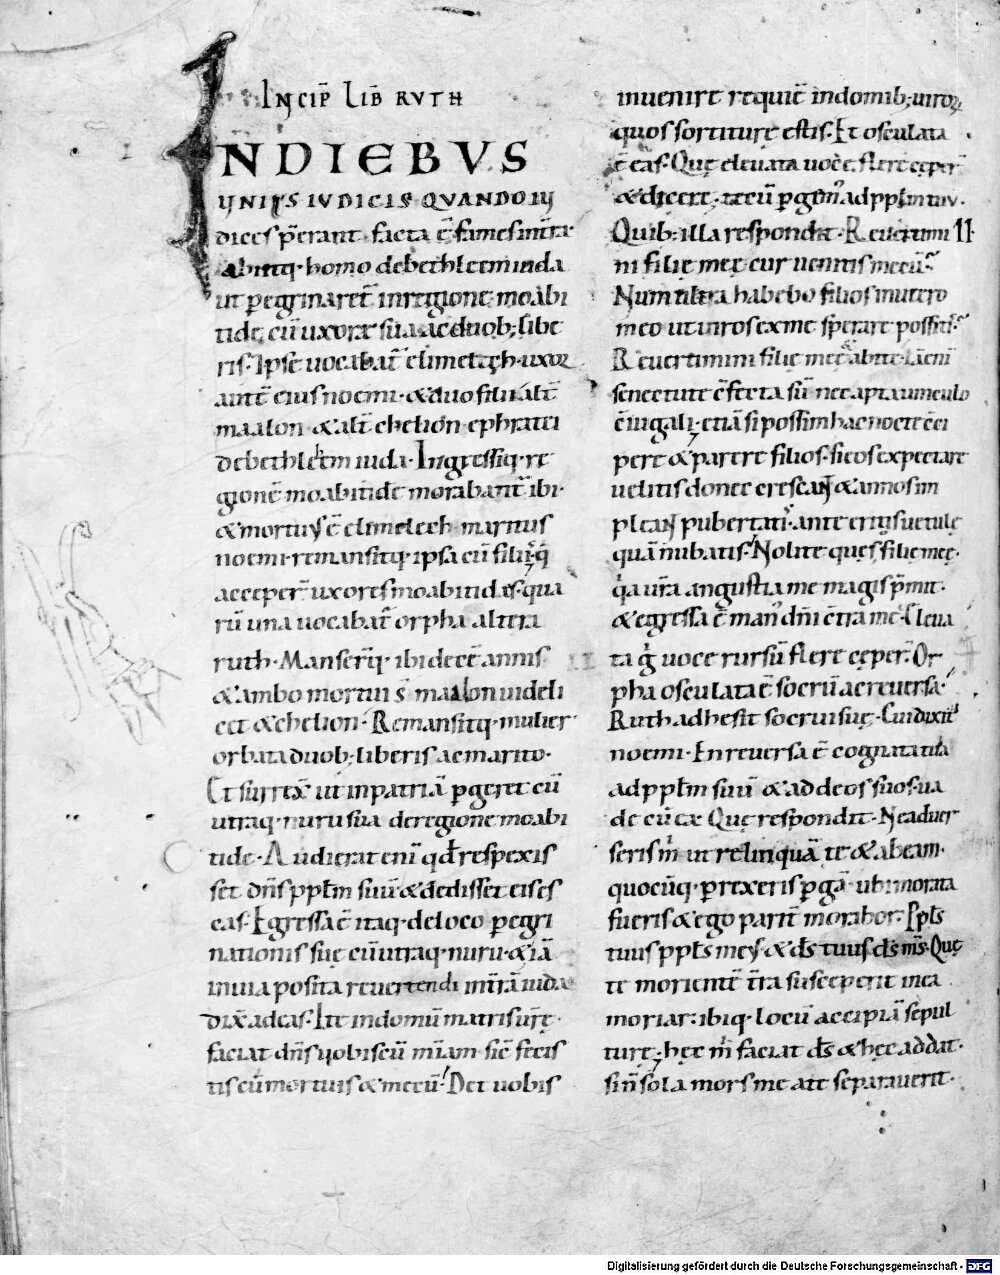 INCIP̄ LIB RVTH
IN DIEBVS
UNIUS IUDICIS QVANDO IU
dices p̄erant· facta ē fames in t̄ra·
abiitq· homo de bethleem iuda
ut peregrinaret̄ in regione moabi
tide cū uxore sua ac duob; libe
ris· Ipse uocabat̄ elimelech· uxor
aut̄ eius noemi· & duo filii alt̄
maalon & alt̄ chelion ephratei
de bethleēm iuda· Ingressiq· re
gionē moabitidē morabant̄ ibi·
& mortuus ē elimelech maritus
noemi· remansitq· ipsa cū filiis q
acceper̄ uxores moabitidas· qua
rū una uocabat̄ orpha altera
ruth· Manserq̄· ibi decē annis
& ambo mortui s̄ maalon uideli
cet & chelion· Remansitq· mulier
orbata duob; liberis ac marito·
Et surrex̄ ut in patriā p̄geret cū
utraq· nuru sua de regione moabi
tide· Audierat eni qđ respexis
set dn̄s ppłm suū & dedisset eis es
cas· Egressa ē itaq· de loco p̄egri
nationis suę cū utraq· nuru· & iā
in uia posita reuertendi in t̄rā iuda
dix̄ ad eas· Ite in domū matris ur̄ę·
faciat dn̄s uobiscū mīam· sic̄ fecis
tis cū mortuis & mecū· Det uobis
inuenire requiē in domib; uiror
quos sortiturę estis· Et osculata
ē eas· Quę eleuata uoce flere ceper̄
& dicere· tecū p̄gem̄ ad ppłm tuū·
Quib; illa respondit· Reuertimi
ni filię meę cur uenitis mecū·
Num ultra habebo filios in utero
meo ut uiros ex me sp̄erare possitis·
Reuertimini filię meę abite· Iā eni
senectute c̄fecta sū nec apta uinculo
c̄iugali· etiā si possim hac nocte c̄ci
pere & parere filios· si eos expectare
uelitis donec crescant & annos im
pleant pubertatis· ante eritis uetulę
quā nubatis· Nolite quęs filię meę·
qa ur̄a angustia me magis p̄mit·
& egressa ē man dn̄i c̄tra me· Eleua
ta g uoce rursū flere ceper̄· Or
pha osculata ē socrū ac reuersa·
Ruth adhesit socrui suę· Cui dixit
noemi· En reuersa ē cognata tua
ad ppłm suū & ad deos suos· ua
de cū ea· Quę respondit· Ne aduer
seris m̄ ut relinquā te & abeam·
quocūq· p̄rexeris p̄gā· ubi morata
fueris & ego parit̄ morabor· Ppłs
tuus ppłs meus & ds̄ tuus ds̄ ms̄· Quę
te morientē t̄ra susceperit in ea
moriar· ibiq· locū accipiā sepul
turę· hęc m̄ faciat ds̄ & hęc addat·
sin̄ sola mors me a te separauerit·
Digitalisierung gefördert durch die Deutsche Forschungsgemeinschaft - DFG